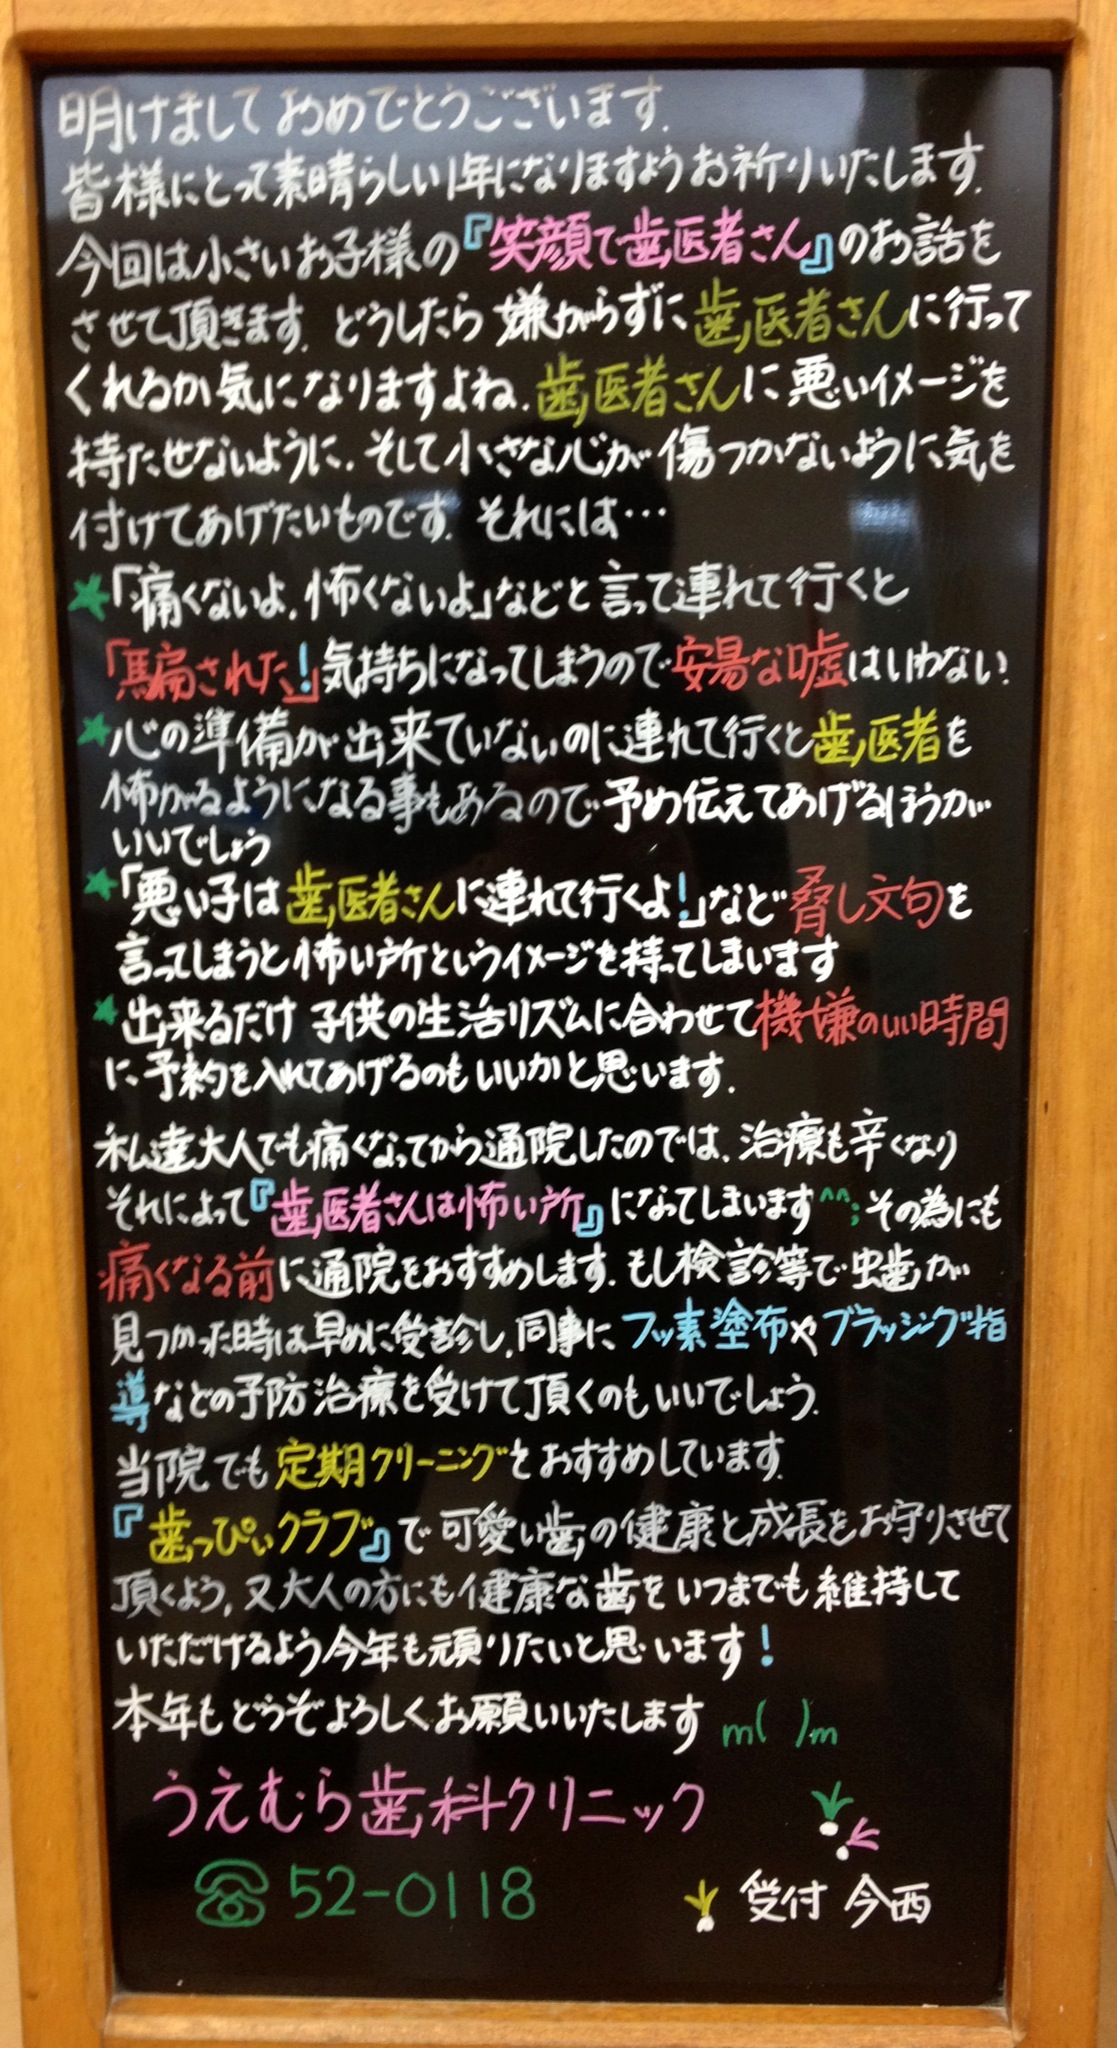 明けましておめでとうございます.
皆様にとって素晴らしい1年になりますようお祈りいたします.
今回は小さいお子様の『笑顔で歯医者さん』のお話を
させて頂きます. どうしたら嫌がらずに歯医者さんに行って
くれるか気になりますよね. 歯医者さんに悪いイメージを
持たせないように. そして小さな心が傷つかないように気を
付けてあげたいものです. それには…
★「痛くないよ. 怖くないよ」などと言って連れて行くと
「騙された!」気持ちになってしまうので安易な嘘はいわない
★心の準備が出来ていないのに連れて行くと歯医者を
怖がるようになる事もあるので予め伝えてあげるほうが
いいでしょう
★「悪い子は歯医者さんに連れて行くよ!」など脅し文句を
言ってしまうと怖い所というイメージを持ってしまいます
★出来るだけ子供の生活リズムに合わせて機嫌のいい時間
に予約を入れてあげるのもいいかと思います.
私達大人でも痛くなってから通院したのでは、治療も辛くなり
それによって『歯医者さんは怖い所』になってしまいます^^; その為にも
痛くなる前に通院をおすすめします. もし検診等で虫歯が
見つかった時は早めに受診し, 同事にフッ素塗布やブラッシング指
導などの予防治療を受けて頂くのもいいでしょう.
当院でも定期クリーニングをおすすめしています.
『歯っぴぃクラブ』で可愛い歯の健康と成長をお守りさせて
頂くよう, 又大人の方にも健康な歯をいつまでも維持して
いただけるよう今年も頑りたいと思います!
本年もどうぞよろしくお願いいたします m( )m
うえむら歯科クリニック
☎52-0118
受付 今西